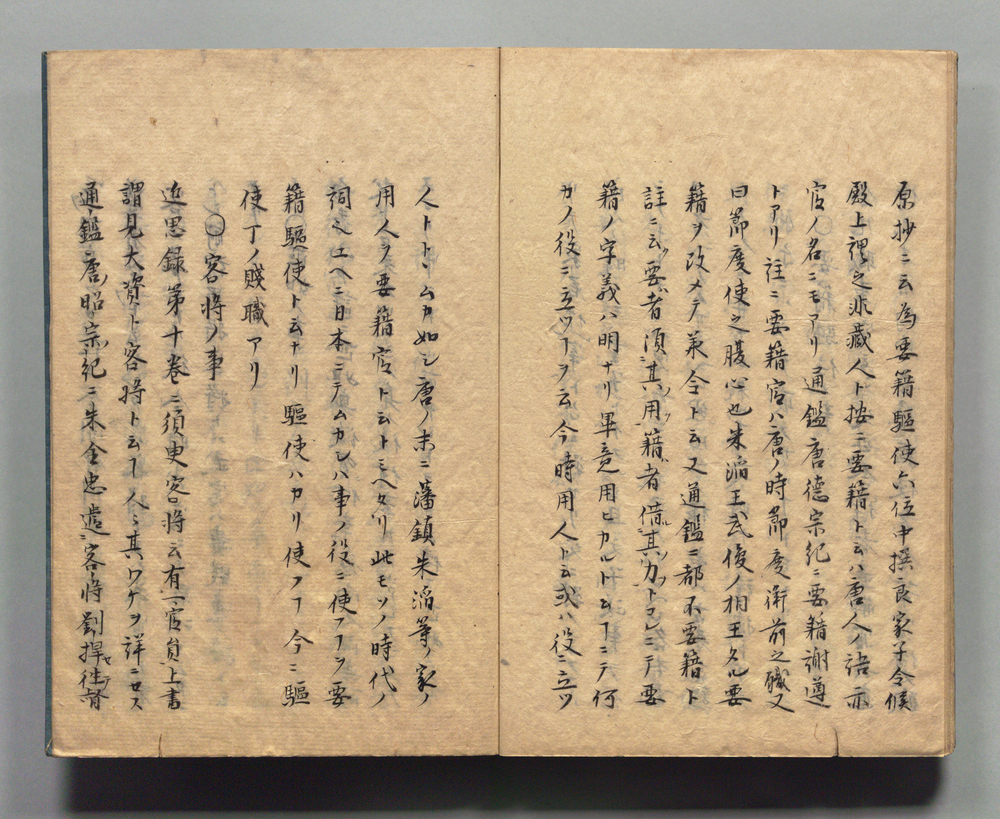 原抄ニ云為要籍驅使六位中撰良家子令候
殿上裡之非蔵人ト按ニ要籍ト云ハ唐人ノ語亦
官ノ名ニモアリ通鑑唐德宗紀ニ要籍謝遵
トアリ註ニ要籍官ハ唐ノ時節度衙前之職又
曰節度使之腹心也朱滔王武俊ノ相王タル要
籍ヲ改メテ承令ト云又通鑑ニ都不要籍ト
註ニ云要者須其用籍者借其力トコレニテ要
籍ノ字義ハ明ナリ畢竟用ヒカルト云ヿニテ何
カノ役ニ立ツヿヲ云今時用人ト云或ハ役ニ立ツ
人トト云ムカ如シ唐ノ末ニ藩鎮朱滔等ノ家ノ
用人ヲ要籍官ト云トミヘタリ此モソノ時代ノ
詞ヘユヘニ日本ニテムカシハ事ノ役ニ使フヿヲ要
籍驅使ト云ナリ驅使ハカリ使フヿ今ニ驅
使丁ノ賤職アリ
○客將ノ事
近思録第十巻ニ須更客將云有一官員上書
謂見大資ト客將ト云ヿ人〻其ワケヲ詳ニセス
通鑑唐昭宗紀ニ朱全忠遣客將劉捍徃督